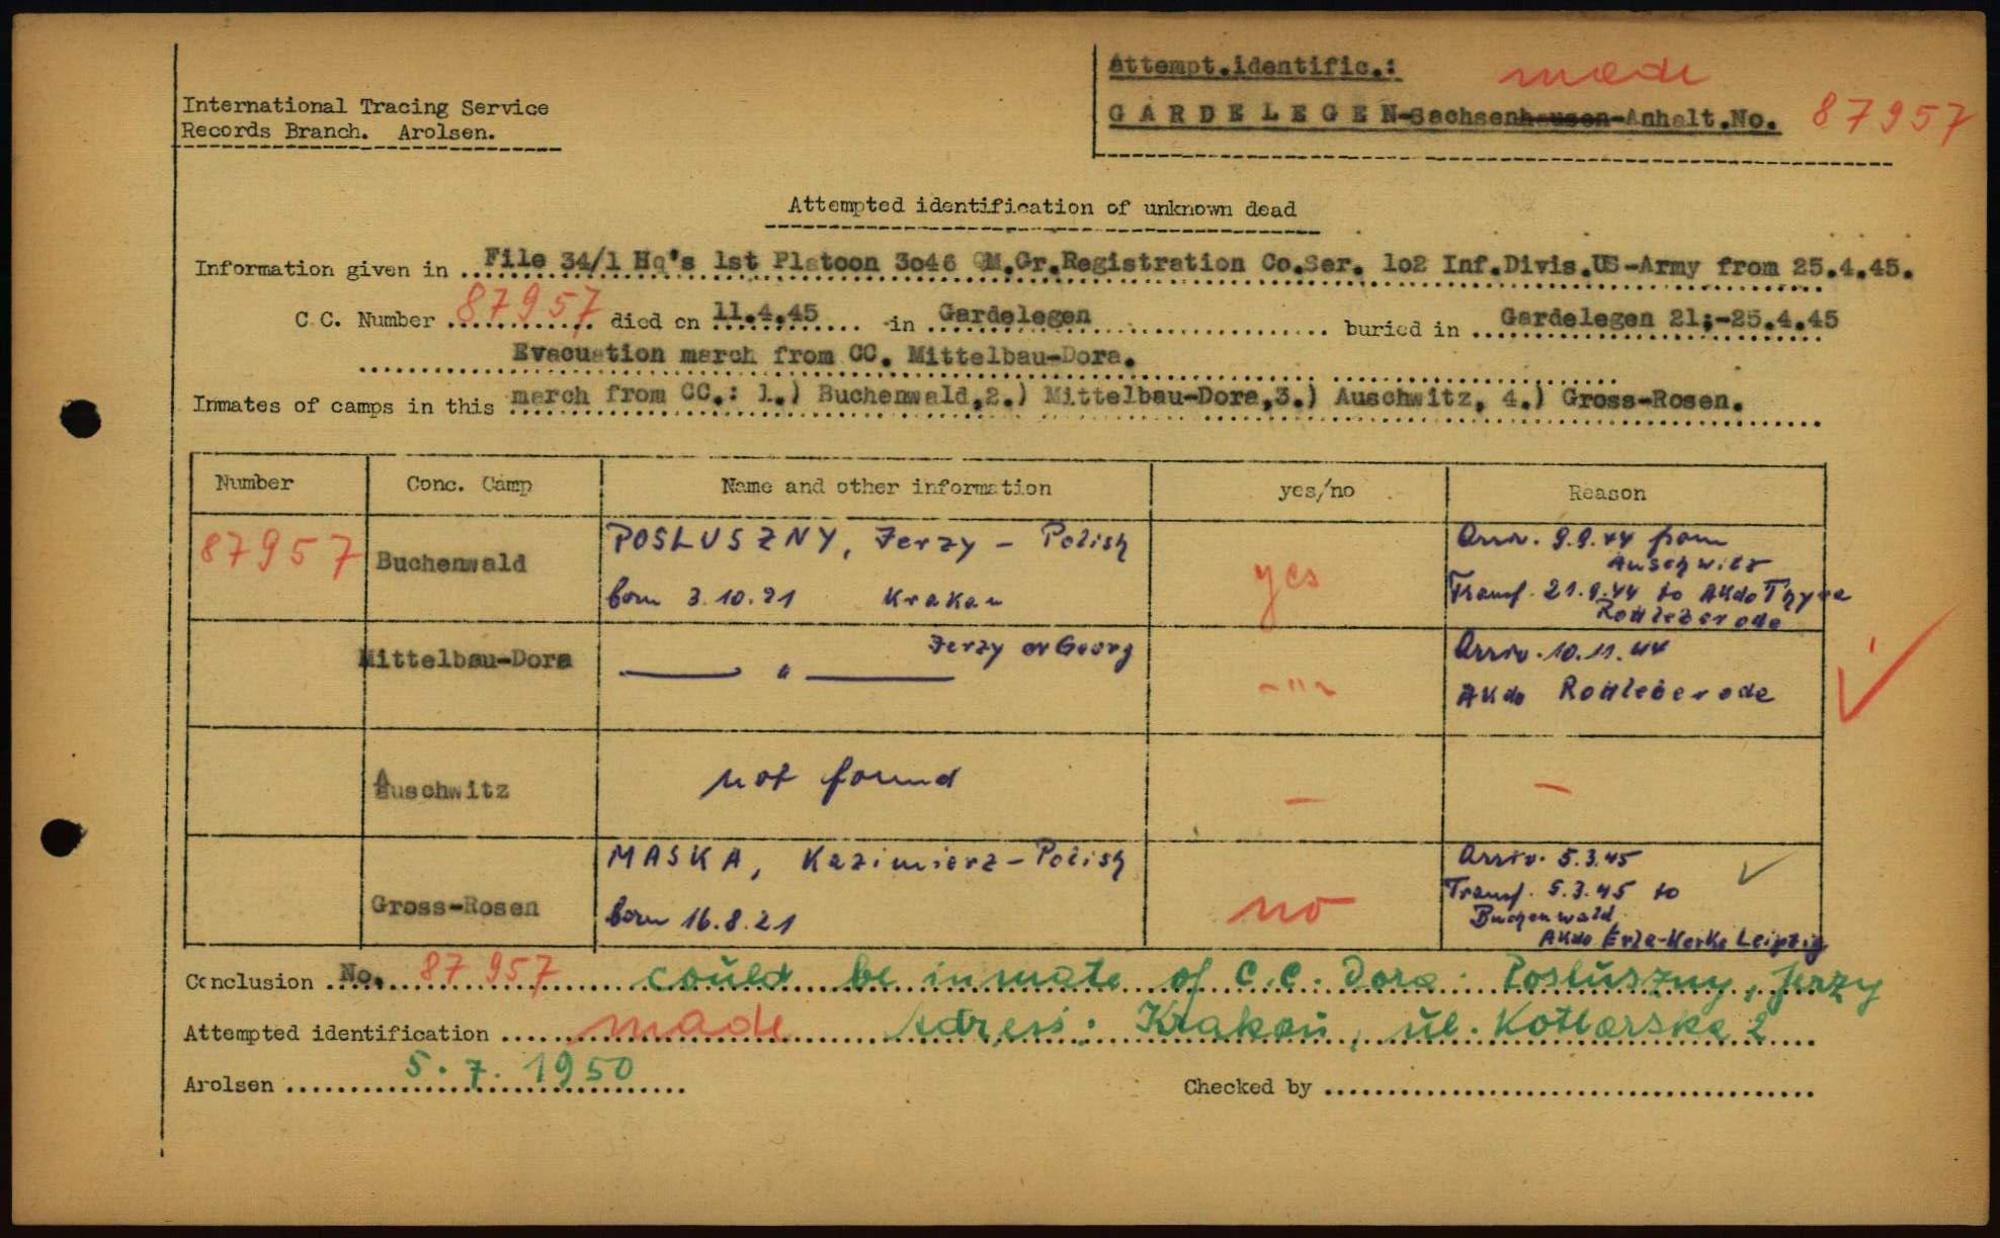 Attempt.identific.: made
International Tracing Service
Records Branch. Arolsen.
G A R D E L E G E N-Sachsenhausen-Anhalt.No. 87957
Attempted identification of unknown dead
Information given in File 34/1 Hq's 1st Platoon 3o46 QM.Gr.Registration Co.Ser. 1o2 Inf.Divis.US-Army from 25.4.45.
C.C. Number 87957 died on 11.4.45 in Gardelegen buried in Gardelegen 21;-25.4.45
Evacuation march from CC. Mittelbau-Dora.
Inmates of camps in this march from CC.: 1.) Buchenwald,2.) Mittelbau-Dora,3.) Auschwitz, 4.) Gross-Rosen.
Number Conc. Camp Name and other information yes/no Reason
87957 Buchenwald POSLUSZNY, Jerzy - Polish
born 3.10.21 Krakau
yes
Arriv. 9.9.44 from
Auschwitz
Transf. 21.9.44 to AKdo Thyra
Rottleberode
Mittelbau-Dora — " — Jerzy or Georg
-"-
Arriv. 10.11.44
AKdo Rottleberode
Auschwitz not found - -
Gross-Rosen MASKA, Kazimierz - Polish
born 16.8.21
no
Arriv. 5.3.45
Transf. 5.3.45 to
Buchenwald
AKdo Erla-Werke Leipzig
Conclusion No. 87957 could be inmate of C.C. Dora: Posłuszny, Jerzy
Attempted identification made Adress: Krakau, ul. Kotlarska 2
Arolsen 5.7.1950 Checked by